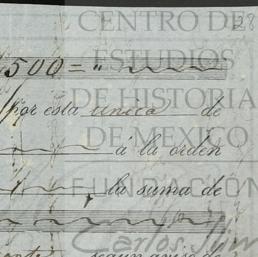 CENTRO DE
28
ESTUDIOS
500 = "
DE HISTORIA
por esta única de
DE MÉXICO
á la orden
FUNDACIÓN
la suma de
Carlos Slim
segun aviso de